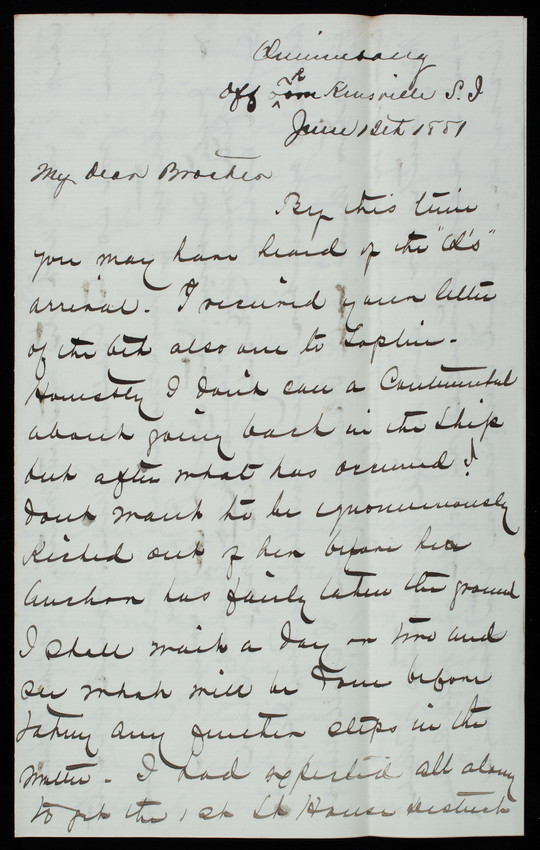 Quinnebaug
Off Tomkinsville S.I
June 12th 1881
My dear Brother
By this time
you may have heard of the "Q's"
arrival. I received your letter
of the 6th also one to Sophie.
Honestly I don't care a Continental
about going back in the Ship
but after what has occurred I
dont want to be ignominiously
kicked out of her before her
Anchor has fairly taken the ground
I shall wait a day or two and
see what will be done before
taking any further steps in the
matter. I had expected all along
to get the 1st Lt House District